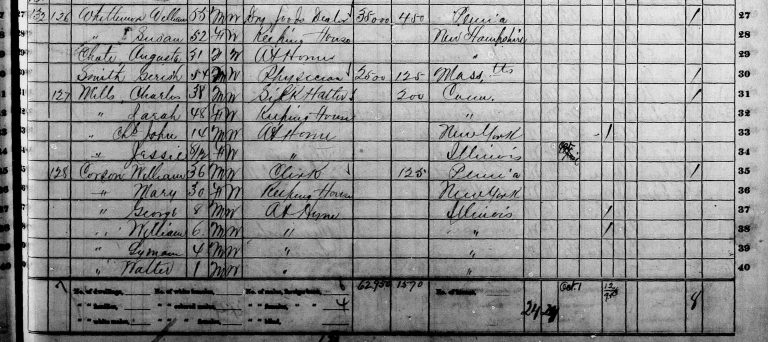 27 132 126 Whittemore William 55 M W Dry Goods Dealer 35000 450 Penn'a 1 27
" Susan 52 F W Keeping House New Hampshire 28
Chate Augusta 31 F W At Home " 29
30 Smith Gerish 54 M W Physician 2500 125 Mass tts 1 30
31 127 Mills Charles 38 M W Silk Hatter 200 Conn. 1 31
" Sarah 48 F W Keeping House " 32
" Chs John 14 M W At Home New York 1 33
" Jessie 8/12 F W " Illinois 34
35 128 Corson William 36 M W Clerk 125 Penn'a 1 35
" Mary 30 F W Keeping House New York 36
" George 8 M W At Home Illinois 1 37
" William 6 M W " " 1 38
" Lyman 4 M W " " 39
" Walter 1 M W " " 40
7 No. of dwellings, No. of white females, No. of males, foreign born, 6 62950 1570 No. of blind, Oct. 1 12 8
" " families, " " colored males, " " females, " " 4 24 24
" " white males, " " " females, " " blind,